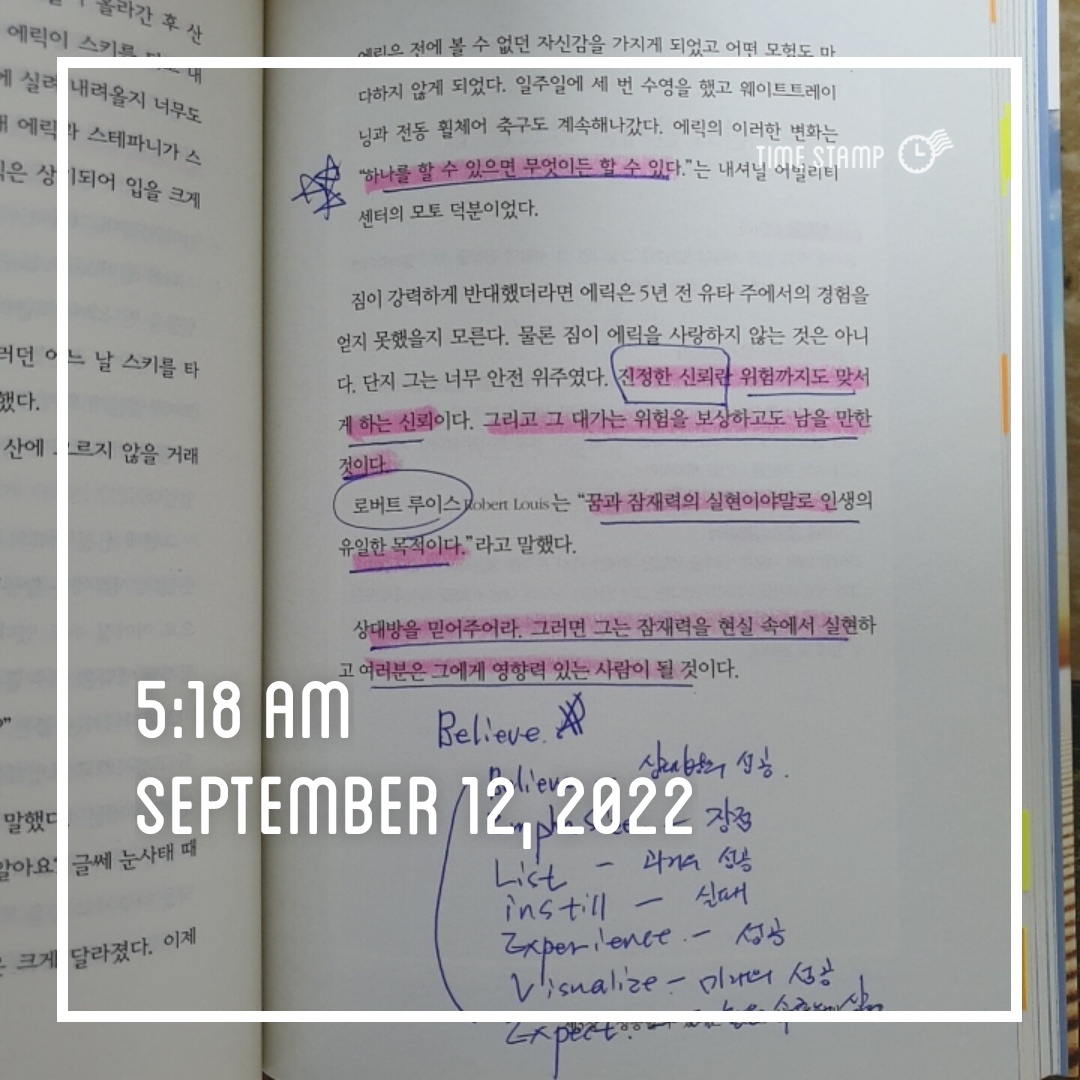 올라간 후 산
에릭이 스키를 타고 내
에 실려 내려올지 너무도
에릭과 스테파니가 스
은 상기되어 입을 크게
러던 어느 날 스키를 타
했다.
산에 오르지 않을 거래
말했다.
알아요? 글쎄 눈사태 때
은 크게 달라졌다. 이제
에릭은 전에 볼 수 없던 자신감을 가지게 되었고 어떤 모험도 마
다하지 않게 되었다. 일주일에 세 번 수영을 했고 웨이트트레이
닝과 전동 휠체어 축구도 계속해나갔다. 에릭의 이러한 변화는
“하나를 할 수 있으면 무엇이든 할 수 있다.”는 내셔널 어빌리티
센터의 모토 덕분이었다.
짐이 강력하게 반대했더라면 에릭은 5년 전 유타 주에서의 경험을
얻지 못했을지 모른다. 물론 짐이 에릭을 사랑하지 않는 것은 아니
다. 단지 그는 너무 안전 위주였다. 진정한 신뢰란 위험까지도 맞서
게 하는 신뢰이다. 그리고 그 대가는 위험을 보상하고도 남을 만한
것이다.
로버트 루이스Robert Louis는 “꿈과 잠재력의 실현이야말로 인생의
유일한 목적이다.”라고 말했다.
상대방을 믿어주어라. 그러면 그는 잠재력을 현실 속에서 실현하
고 여러분은 그에게 영향력 있는 사람이 될 것이다.
Believe.
Believe - 상대방의 성공.
Emphasize - 장점
List - 과거의 성공
instill - 실패
Experience - 성공
Visualize - 미래의 성공
Expect.
TIME STAMP
5:18 AM
SEPTEMBER 12, 2022